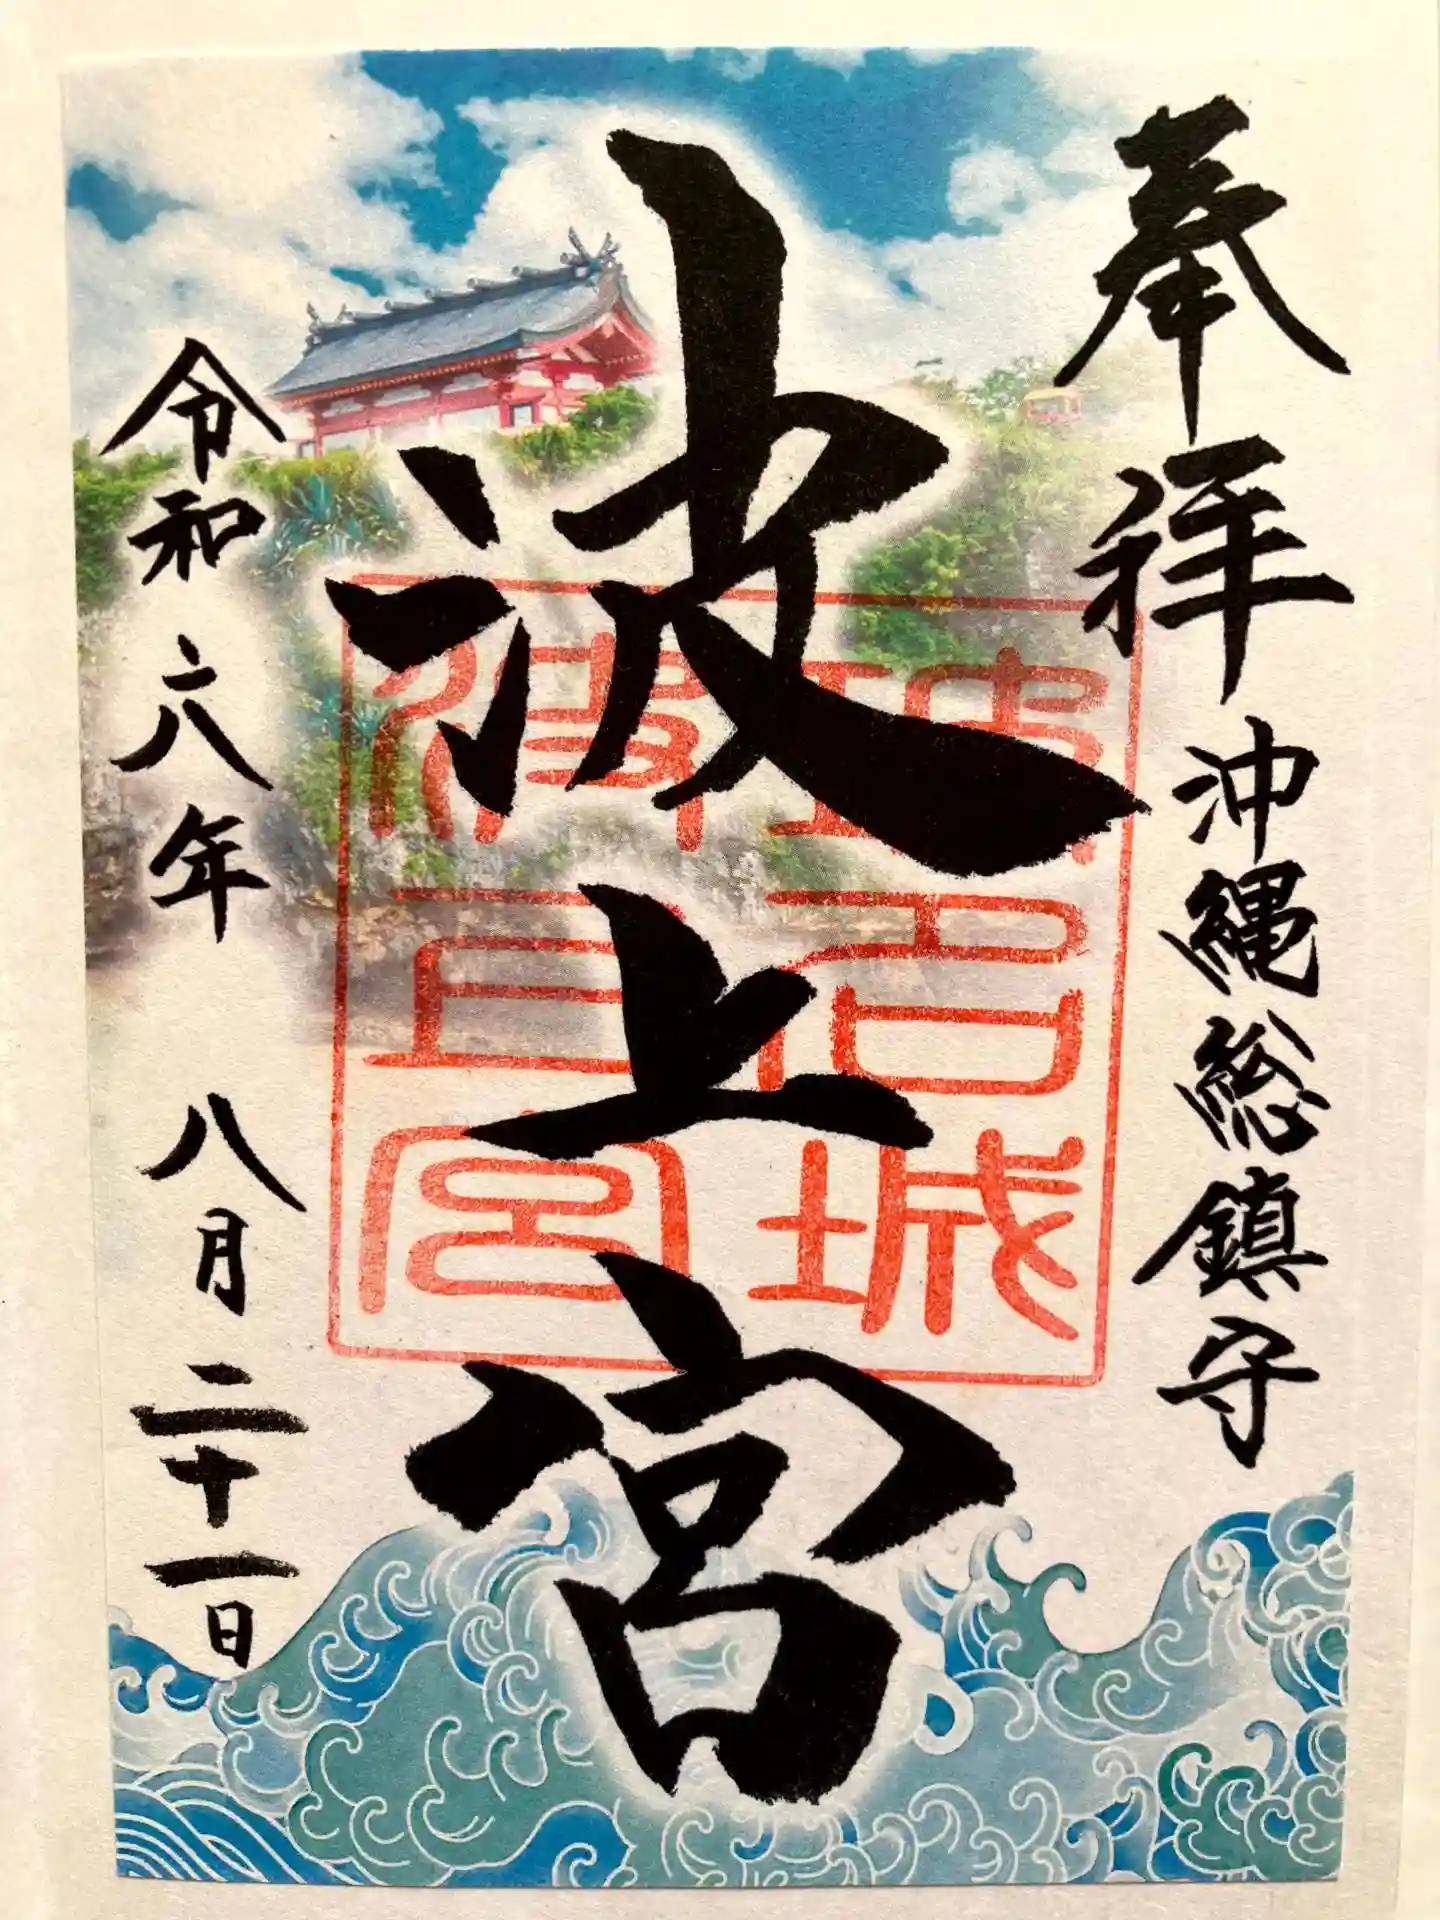 奉拝
沖縄総鎮守
波上宮
令和六年 八月二十一日
琉球
波上宮